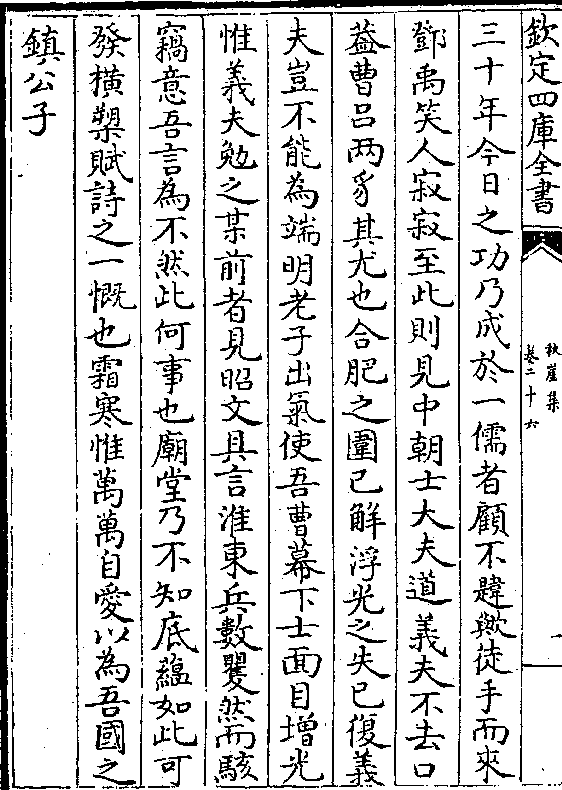 欽定四庫全書
秋崖集
卷二十六
三十年今日之功乃成於一儒者顧不韙歟徒手而來
鄧禹笑人寂寂至此則見中朝士大夫道義夫不去口
葢曹吕两豸其尤也合肥之圍已解浮光之失已復義
夫豈不能為端明老子出氣使吾曹幕下士面目增光
惟義夫勉之某前者見昭文具言淮東兵數矍然而駭
竊意吾言為不然此何事也廟堂乃不知底藴如此可
發橫槊賦詩之一慨也霜寒惟萬萬自愛以為吾國之
鎮公子